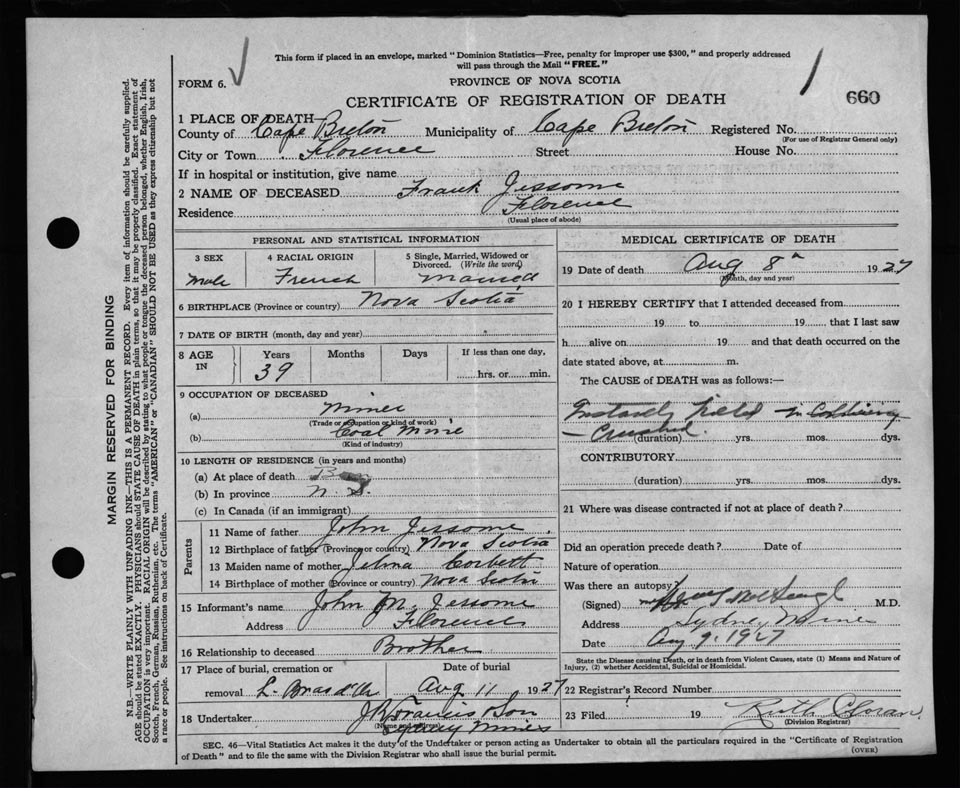 This form if placed in an envelope, marked "Dominion Statistics—Free, penalty for improper use $300," and properly addressed
will pass through the Mail "FREE."
FORM 6.
PROVINCE OF NOVA SCOTIA
CERTIFICATE OF REGISTRATION OF DEATH
660
1 PLACE OF DEATH—
County of Cape Breton Municipality of Cape Breton Registered No.
(For use of Registrar General only)
City or Town Florence Street House No.
If in hospital or institution, give name
2 NAME OF DECEASED Frank Jessome
Residence Florence
(Usual place of abode)
PERSONAL AND STATISTICAL INFORMATION
3 SEX 4 RACIAL ORIGIN 5 Single, Married, Widowed or
Divorced. (Write the word)
Male French Married
6 BIRTHPLACE (Province or country) Nova Scotia
7 DATE OF BIRTH (month, day and year)
8 AGE IN Years Months Days If less than one day,
39 hrs. or min.
9 OCCUPATION OF DECEASED
(a) Miner
(Trade or occupation or kind of work)
(b) Coal Mine
(Kind of industry)
10 LENGTH OF RESIDENCE (in years and months)
(a) At place of death
(b) In province N. S.
(c) In Canada (if an immigrant)
Parents
11 Name of father John Jessome
12 Birthplace of father (Province or country) Nova Scotia
13 Maiden name of mother Corbett
14 Birthplace of mother (Province or country) Nova Scotia
15 Informant's name John M. Jessome
Address Florence
16 Relationship to deceased Brother
17 Place of burial, cremation or Date of burial
removal L. Bras d'Or Aug 11 1927
18 Undertaker Francis Son
(Name and address)
Sydney Mines
MEDICAL CERTIFICATE OF DEATH
19 Date of death Aug 8 1927
(Month, day and year)
20 I HEREBY CERTIFY that I attended deceased from
19 to 19 that I last saw
h alive on 19 and that death occurred on the
date stated above, at m.
The CAUSE of DEATH was as follows:—
Killed in Colliery
— Crushed.
(duration) yrs. mos. dys.
CONTRIBUTORY
(duration) yrs. mos. dys.
21 Where was disease contracted if not at place of death?
Did an operation precede death? Date of
Nature of operation
Was there an autopsy
(Signed) M.D.
Address Sydney Mines
Date Aug 9, 1927
State the Disease causing Death, or in death from Violent Causes, state (1) Means and Nature of
Injury, (2) whether Accidental, Suicidal or Homicidal.
22 Registrar's Record Number
23 Filed 19 Ruth
(Division Registrar)
SEC. 46—Vital Statistics Act makes it the duty of the Undertaker or person acting as Undertaker to obtain all the particulars required in the "Certificate of Registration
of Death" and to file the same with the Division Registrar who shall issue the burial permit.
(OVER)
MARGIN RESERVED FOR BINDING
N.B.—WRITE PLAINLY WITH UNFADING INK—THIS IS A PERMANENT RECORD. Every item of information should be carefully supplied.
AGE should be stated EXACTLY. PHYSICIANS should STATE CAUSE OF DEATH in plain terms, so that it may be properly classified. Exact statement of
OCCUPATION is very important. RACIAL ORIGIN will be described by stating to what people or tongue the deceased person belonged, whether English, Irish,
Scotch, French, German, Russian, Ruthenian, etc. The terms "AMERICAN" or "CANADIAN" SHOULD NOT BE USED as they express citizenship but not
a race or people. See instructions on back of Certificate.